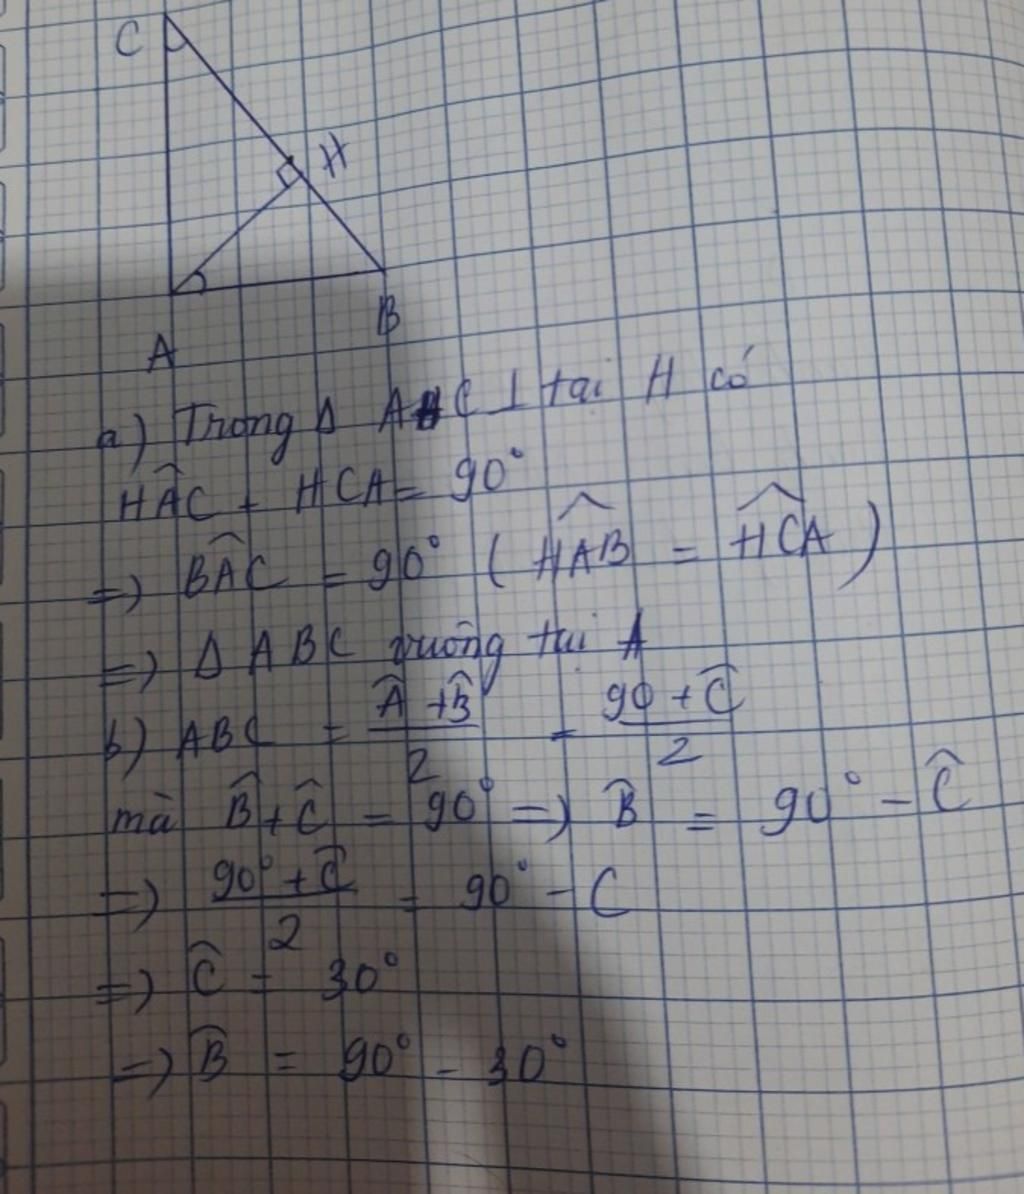 C
H
B
A
a) Trong Δ AHC ⊥ tại H có
HÂC + HCA = 90°
=> BÂC = 90° ( \widehat{HAB} = \widehat{HCA} )
=> Δ ABC vuông tại A
b) ABC = (Â + B̂)/2 = (90 + Ĉ)/2
mà B̂ + Ĉ = 90° => B̂ = 90° - Ĉ
=> (90° + Ĉ)/2 = 90° - C
=> Ĉ = 30°
=> B̂ = 90° - 30°